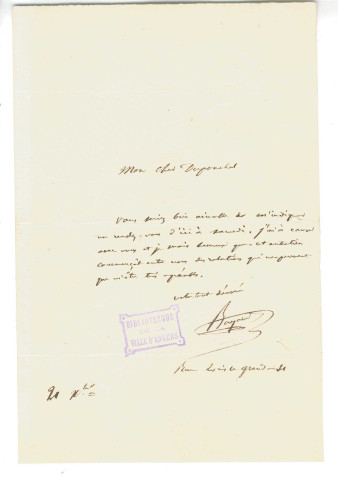 Mon cher Duponchel
Vous seriez bien aimable de m'indiquer
un rendez-vous d'ici à samedi. j'ai à causer
avec vous et je serais heureux que cet entretien
commençat entre nous des relations qui ne peuvent
que m'être très agréables.
votre tout dévoué
Bayard
BIBLIOTHEQUE
DE LA
VILLE D'ANGERS
Rue Louis le grand
21 Xbre